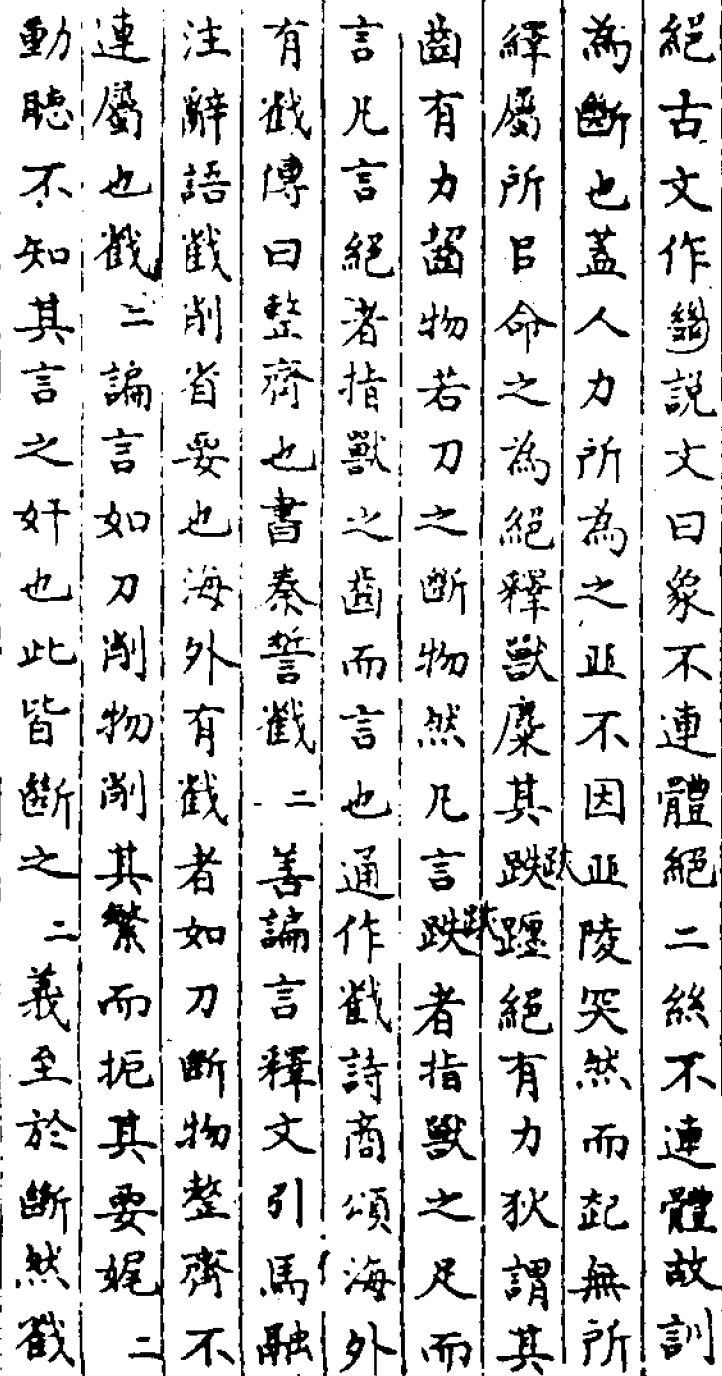 絕古文作𢇍說文曰象不連體絕二絲不連體故訓
為斷也蓋人力所為之丘不因丘陵突然而起無所
繹屬所㠯命之為絕釋獸麋其跡𨇠絕有力狄謂其
齒有力齧物若刀之斷物然凡言跡者指獸之足而
言凡言絕者指獸之齒而言也通作截詩商頌海外
有截傳曰整齊也書秦誓截二善諞言釋文引馬融
注辭語截削省要也海外有截者如刀斷物整齊不
連屬也截二諞言如刀削物削其繁而扼其要娓二
動聽不知其言之奸也此皆斷之二義至於斷然截